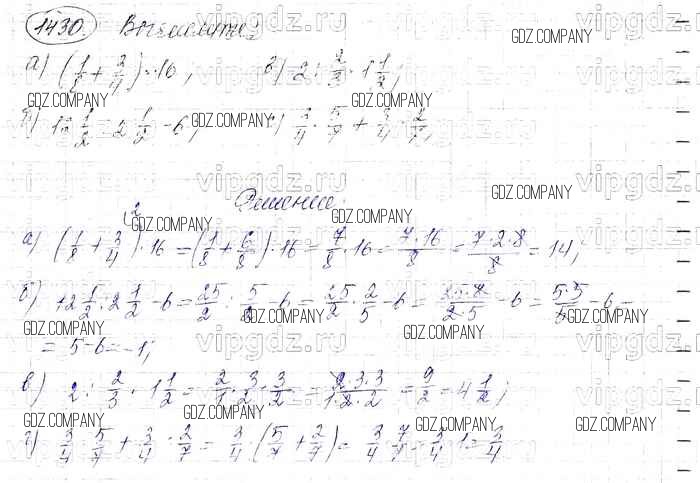 1430. Вычислите:
а) (1/8 + 3/4) · 16; в) 2 : 2/3 · 1 1/2;
б) 12 1/2 : 2 1/2 - 6; г) 3/4 · 5/7 + 3/4 · 2/7;
Решение:
а) (1/8 + 3/4) · 16 = (1/8 + 6/8) · 16 = 7/8 · 16 = 7·16/8 = 7·2·8/8 = 14;
б) 12 1/2 : 2 1/2 - 6 = 25/2 : 5/2 - 6 = 25/2 · 2/5 - 6 = 25·2/2·5 - 6 = 5·5/5 - 6 =
= 5 - 6 = -1;
в) 2 : 2/3 · 1 1/2 = 2/1 · 3/2 · 3/2 = 2·3·3/1·2·2 = 9/2 = 4 1/2;
г) 3/4 · 5/7 + 3/4 · 2/7 = 3/4 · (5/7 + 2/7) = 3/4 · 7/7 = 3/4 · 1 = 3/4
GDZ.COMPANY
vipgdz.ru